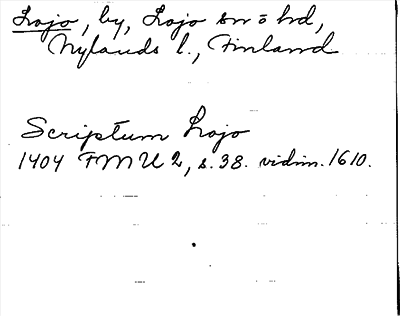 Lojo, by, Lojo sn o hd,
Nylands l., Finland
Scriptum Lojo
1404 FMU 2, s. 38. vidim. 1610.